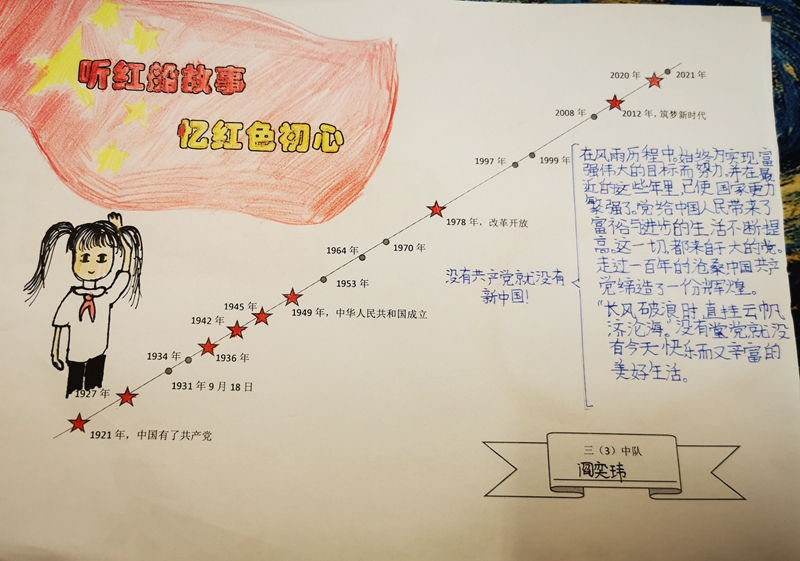 听红船故事
忆红色初心
2020 年
2021 年
2008 年
2012 年，筑梦新时代
1997 年
1999 年
1978 年，改革开放
1964 年
1970 年
1953 年
1945 年
1949 年，中华人民共和国成立
1942 年
1936 年
1934 年
1931 年 9 月 18 日
1927 年
1921 年，中国有了共产党
没有共产党就没有
新中国！
在风雨历程中,始终为实现富
强伟大的目标而努力。并在最
近的这些年里,已使国家更力
繁强了。党给中国人民带来了
富裕与进步的生活不断提
高。这一切都来自于大的党。
走过一百年的沧桑中国共产
党缔造了一份辉煌。
“长风破浪时,直挂云帆
济沧海。”没有堂党就没
有今天快乐而又辛富的
美好生活。
三（3）中队
阎奕玮